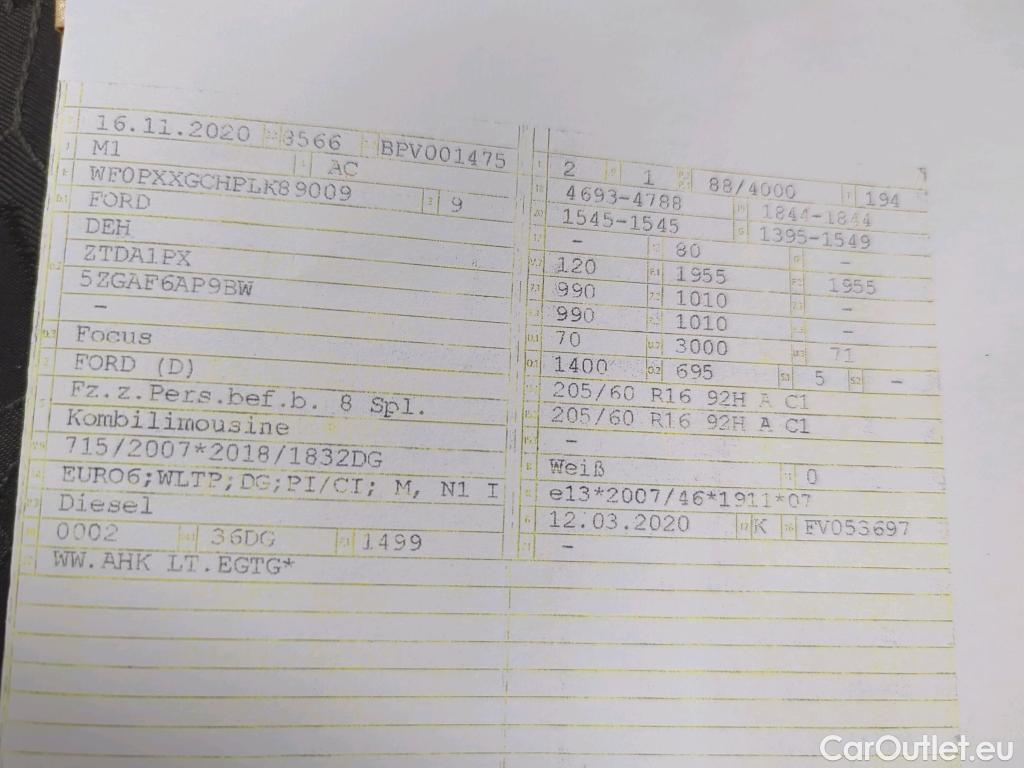 16.11.2020 8566 BPV001475
M1 AC
WF0PXXGCHPLK89009 9
FORD
DEH
ZTDA1PX
5ZGAF6AP9BW
–
Focus
FORD (D)
Fz.z.Pers.bef.b. 8 Spl.
Kombilimousine
715/2007*2018/1832DG
EURO6;WLTP;DG;PI/CI; M, N1 I
Diesel
0002 36DG 1499
WW.AHK LT.EGTG*
2 1 88/4000 194
4693-4788 1844-1844
1545-1545 1395-1549
– 80 –
120 1955 1955
990 1010 –
990 1010 –
70 3000 71
1400 695 5 –
205/60 R16 92H A C1
205/60 R16 92H A C1
–
Weiß 0
e13*2007/46*1911*07
12.03.2020 K FV053697
–
CarOutlet.eu